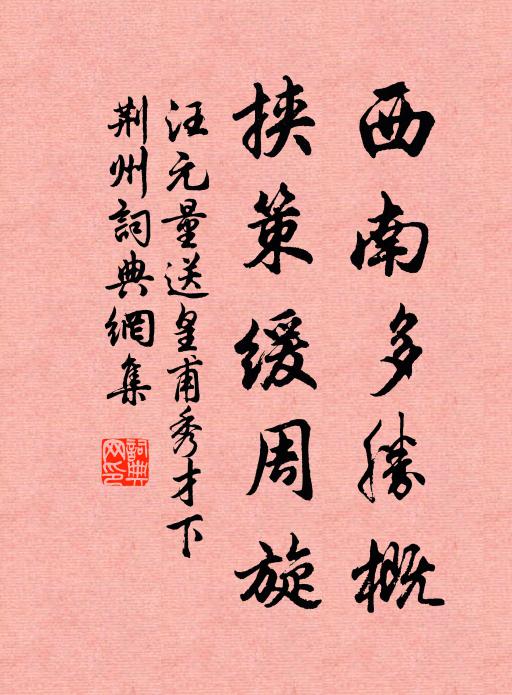 西南多勝概
挾策緩周旋
汪元量送皇甫秀才下
荆州詞典網集
詞典网印